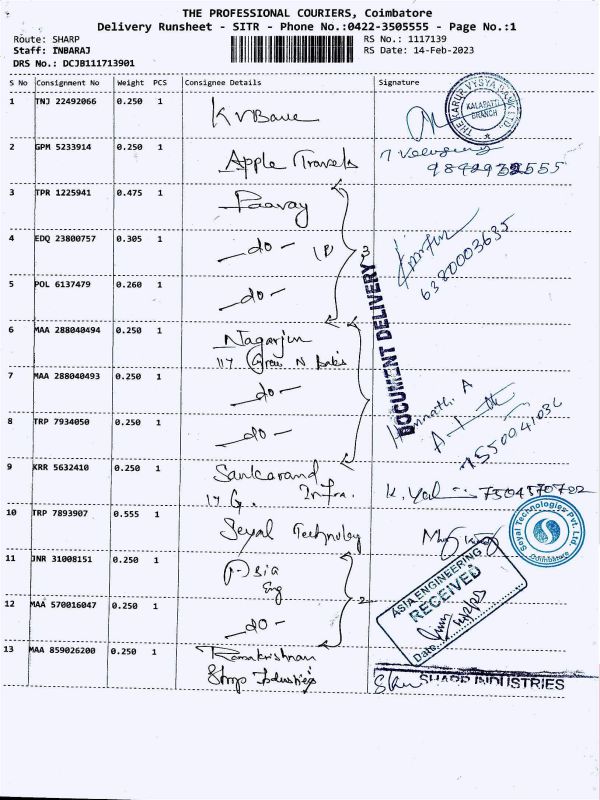 THE PROFESSIONAL COURIERS, Coimbatore
Delivery Runsheet - SITR - Phone No.:0422-3505555 - Page No.:1
Route: SHARP
RS No.: 1117139
Staff: INBARAJ
RS Date: 14-Feb-2023
DRS No.: DCJB111713901
S No Consignment No Weight PCS Consignee Details Signature
1 TNJ 22492066 0.250 1 KVBank
THE KARUR VYSYA BANK LTD.
KALAPATTI BRANCH
2 GPM 5233914 0.250 1 Apple Travels
9842932555
3 TPR 1225941 0.475 1 Paavay
4 EDQ 23800757 0.305 1 -do- 3
6380003635
5 POL 6137479 0.260 1 -do-
DOCUMENT DELIVERY
6 MAA 288040494 0.250 1 Nagarjun
7 MAA 288040493 0.250 1 -do-
8 TRP 7934050 0.250 1 -do-
A
7550041036
9 KRR 5632410 0.250 1 Sankarand
Infra. K. 7504570722
10 TRP 7893907 0.555 1 Seyal Technology
Seyal Technologies Pvt. Ltd.
Coimbatore
11 JNR 31008151 0.250 1 Asia
Eng
ASIA ENGINEERING
RECEIVED
Date
12 MAA 570016047 0.250 1 -do- 2
13 MAA 859026200 0.250 1 Ramakrishnan
Sharp Industries
SHARP INDUSTRIES